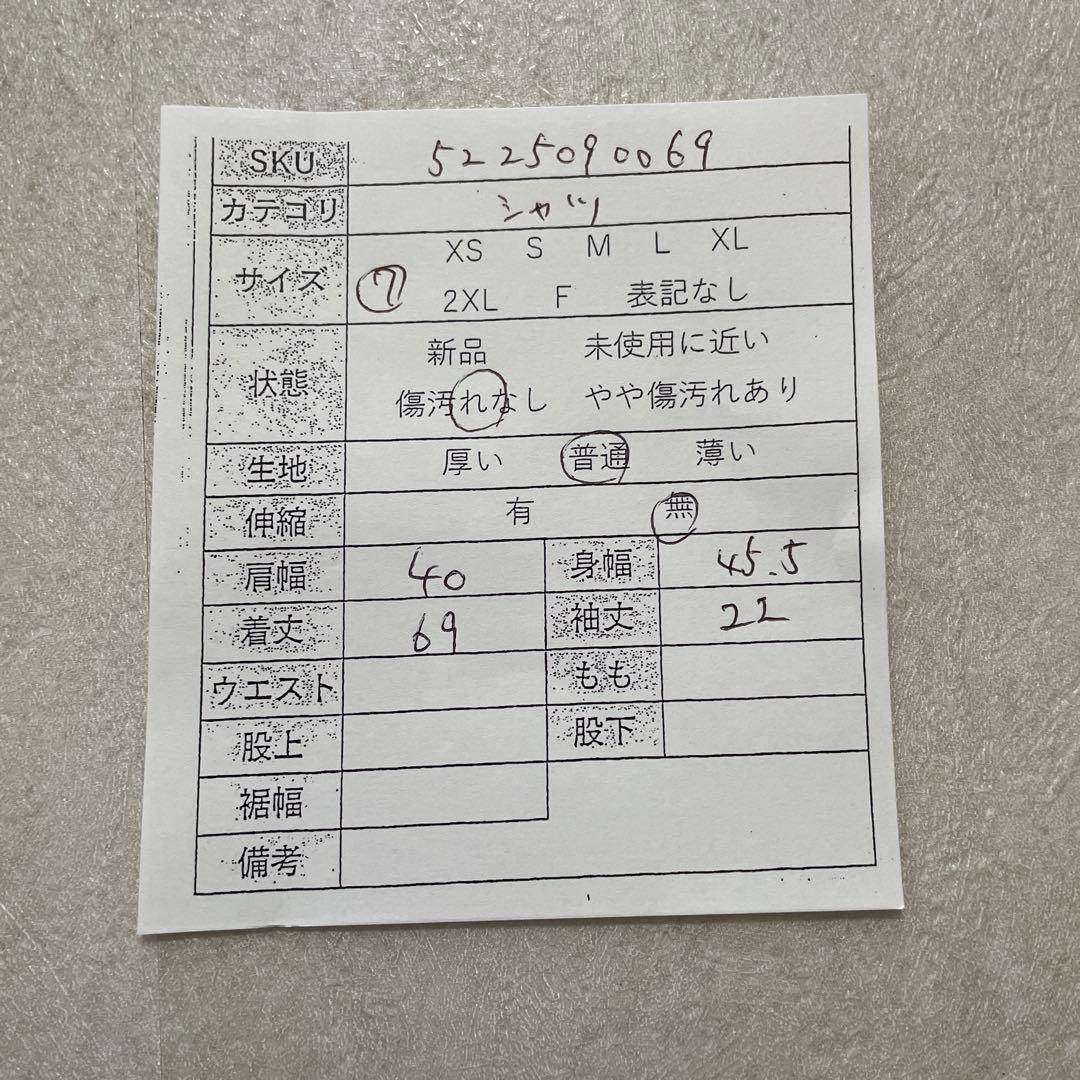 SKU 5225090069
カテゴリ シャツ
サイズ XS S M L XL
⑦ 2XL F 表記なし
状態 新品 未使用に近い
傷汚れなし やや傷汚れあり
生地 厚い 普通 薄い
伸縮 有 無
肩幅 40 身幅 45.5
着丈 69 袖丈 22
ウエスト もも
股上 股下
裾幅
備考